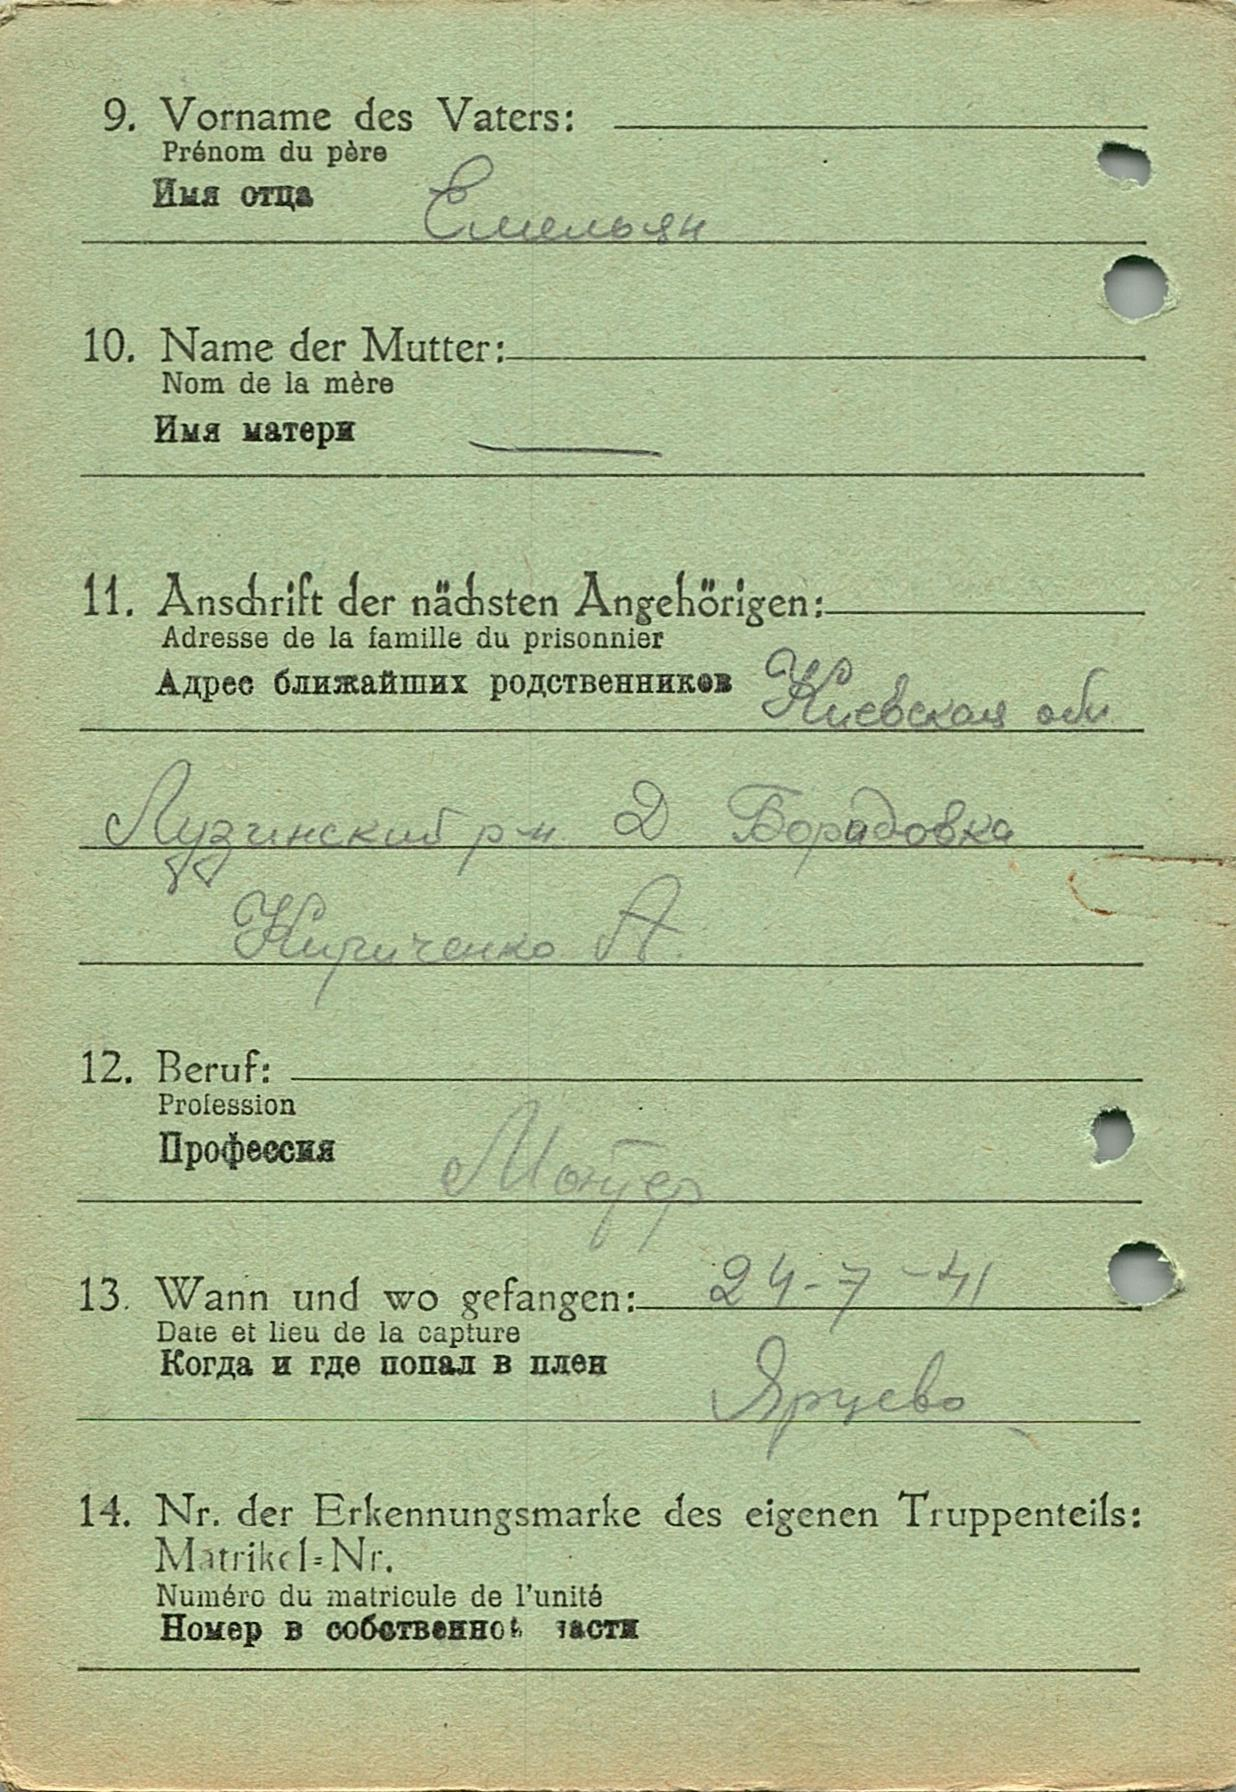 9. Vorname des Vaters:
Prénom du père
Имя отца
Емельян
10. Name der Mutter:
Nom de la mère
Имя матери
11. Anschrift der nächsten Angehörigen:
Adresse de la famille du prisonnier
Адрес ближайших родственников Киевская обл
Лузинский р-н Д Борадовка
Кириченко А.
12. Beruf:
Profession
Профессия
Монтер
13. Wann und wo gefangen: 24-7-41
Date et lieu de la capture
Когда и где попал в плен
Ярцево
14. Nr. der Erkennungsmarke des eigenen Truppenteils:
Matrikel=Nr.
Numéro du matricule de l'unité
Номер в собственной части